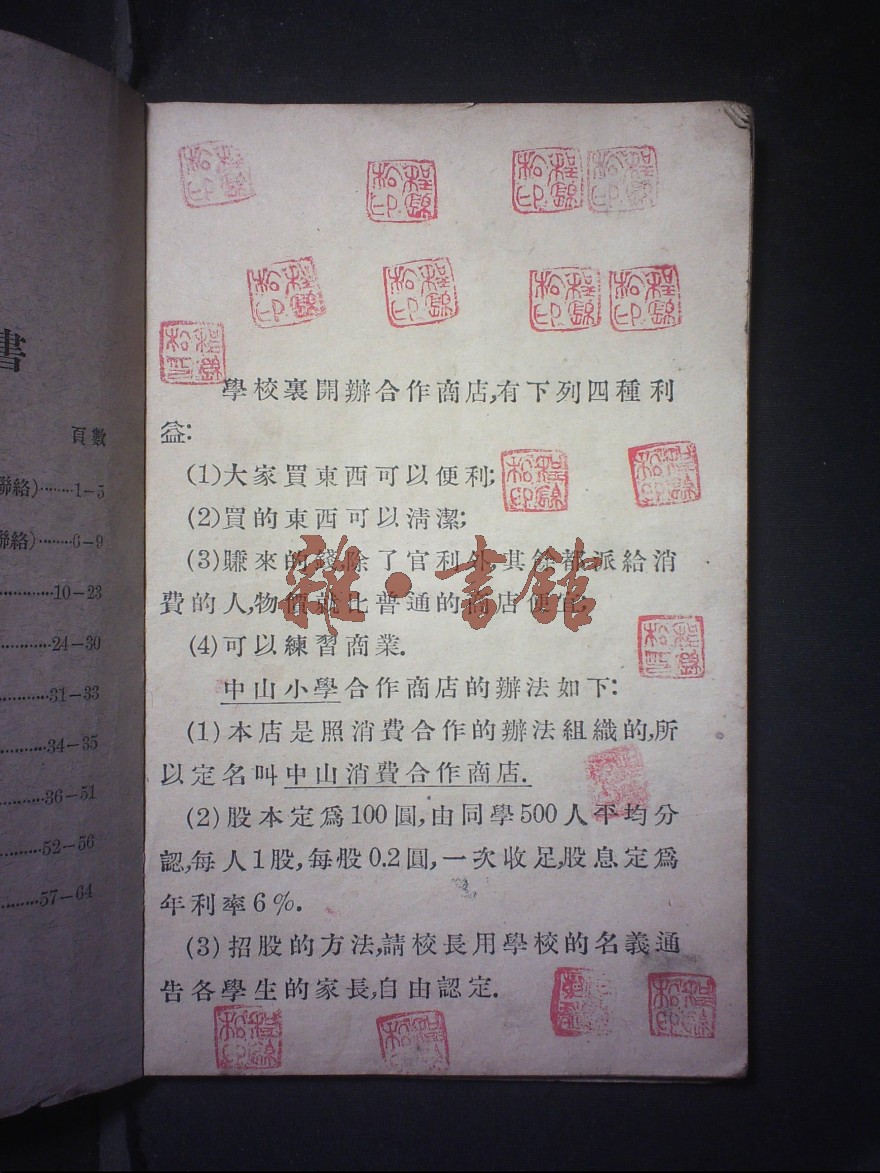 書
頁數
聯絡)········1—5
聯絡)·······6—9
············10—23
············24—30
············31—33
············34—35
············36—51
············52—56
············57—64
學校裏開辦合作商店,有下列四種利
益:
(1)大家買東西可以便利;
(2)買的東西可以淸潔;
(3)賺來的錢除了官利外,其餘都派給消
費的人,物價就比普通的商店便宜;
(4)可以練習商業.
中山小學合作商店的辦法如下:
(1)本店是照消費合作的辦法組織的,所
以定名叫中山消費合作商店.
(2)股本定爲100圓,由同學500人平均分
認,每人1股,每股0.2圓,一次收足,股息定爲
年利率6%.
(3)招股的方法,請校長用學校的名義通
告各學生的家長,自由認定.
雜·書館